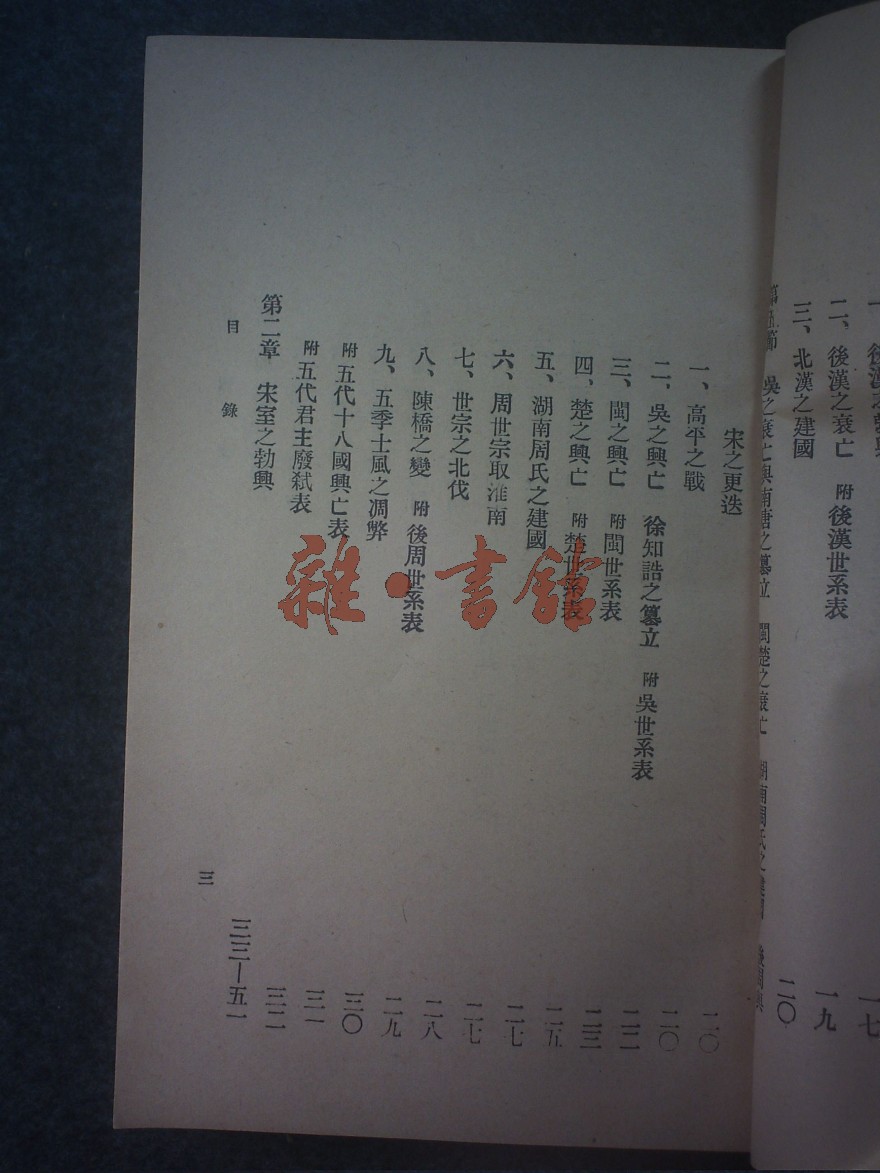 後漢之勃興 一七
二、後漢之衰亡 附後漢世系表 一九
三、北漢之建國 二〇
第五節 吳之衰亡與南唐之篡立 閩楚之衰亡 湖南周氏之建國 後周與
宋之更迭 二〇
一、高平之戰 二〇
二、吳之興亡 徐知誥之篡立 附吳世系表 二二
三、閩之興亡 附閩世系表 二三
四、楚之興亡 附楚世系表 二五
五、湖南周氏之建國 二七
六、周世宗取淮南 二七
七、世宗之北伐 二八
八、陳橋之變 附後周世系表 二九
九、五季士風之凋弊 三〇
附五代十八國興亡表 三一
附五代君主廢弑表 三二
第二章 宋室之勃興 三三—五一
目錄 三
雜·書館